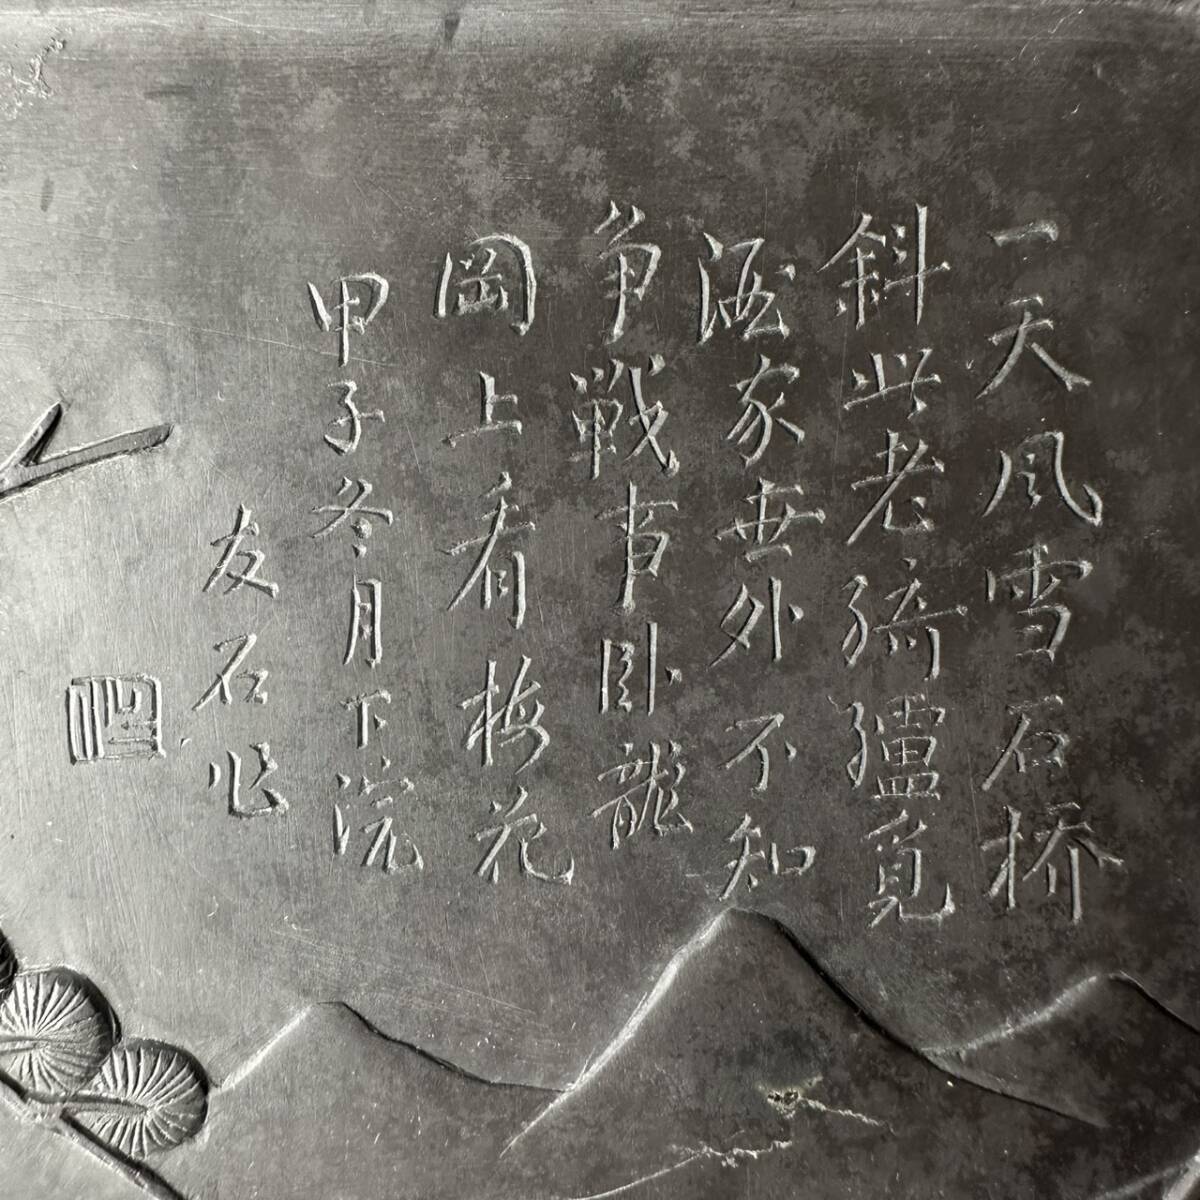 一天风雪石桥
斜此老骑驴觅
酒家世外不知
争戦事卧龍
岡上看梅花
甲子冬月下浣
友石作